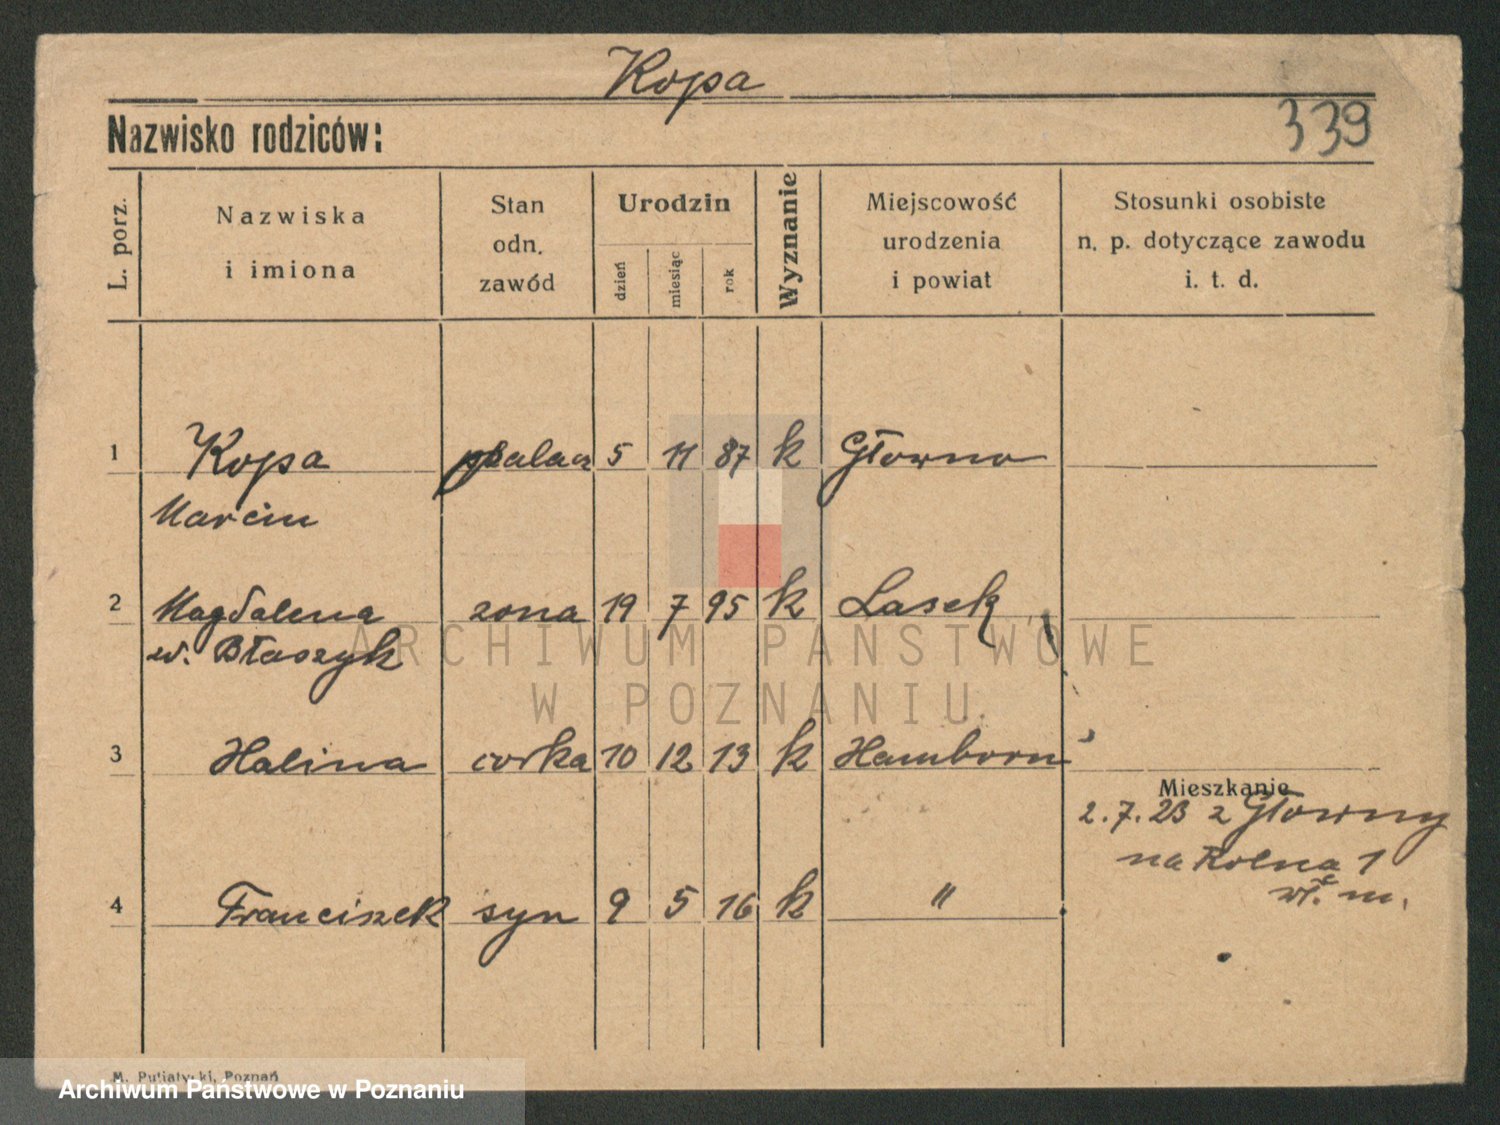 Kopa
339
Nazwisko rodziców:
L. porz.
Nazwiska
i imiona
Stan
odn.
zawód
Urodzin
dzień
miesiąc
rok
Wyznanie
Miejscowość
urodzenia
i powiat
Stosunki osobiste
n. p. dotyczące zawodu
i. t. d.
1 Kopa palacz 5 11 87 k Głowno
Marcin
2 Magdalena zona 19 7 95 k Lasek
w. Błaszyk
3 Halina corka 10 12 13 k Hamborn
Mieszkanie
2.7.23 z Głowny
na Rolna 1
wł. m.
4 Franciszek syn 9 5 16 k "
ARCHIWUM PAŃSTWOWE
W POZNANIU
M. Putiatycki, Poznań
Archiwum Państwowe w Poznaniu